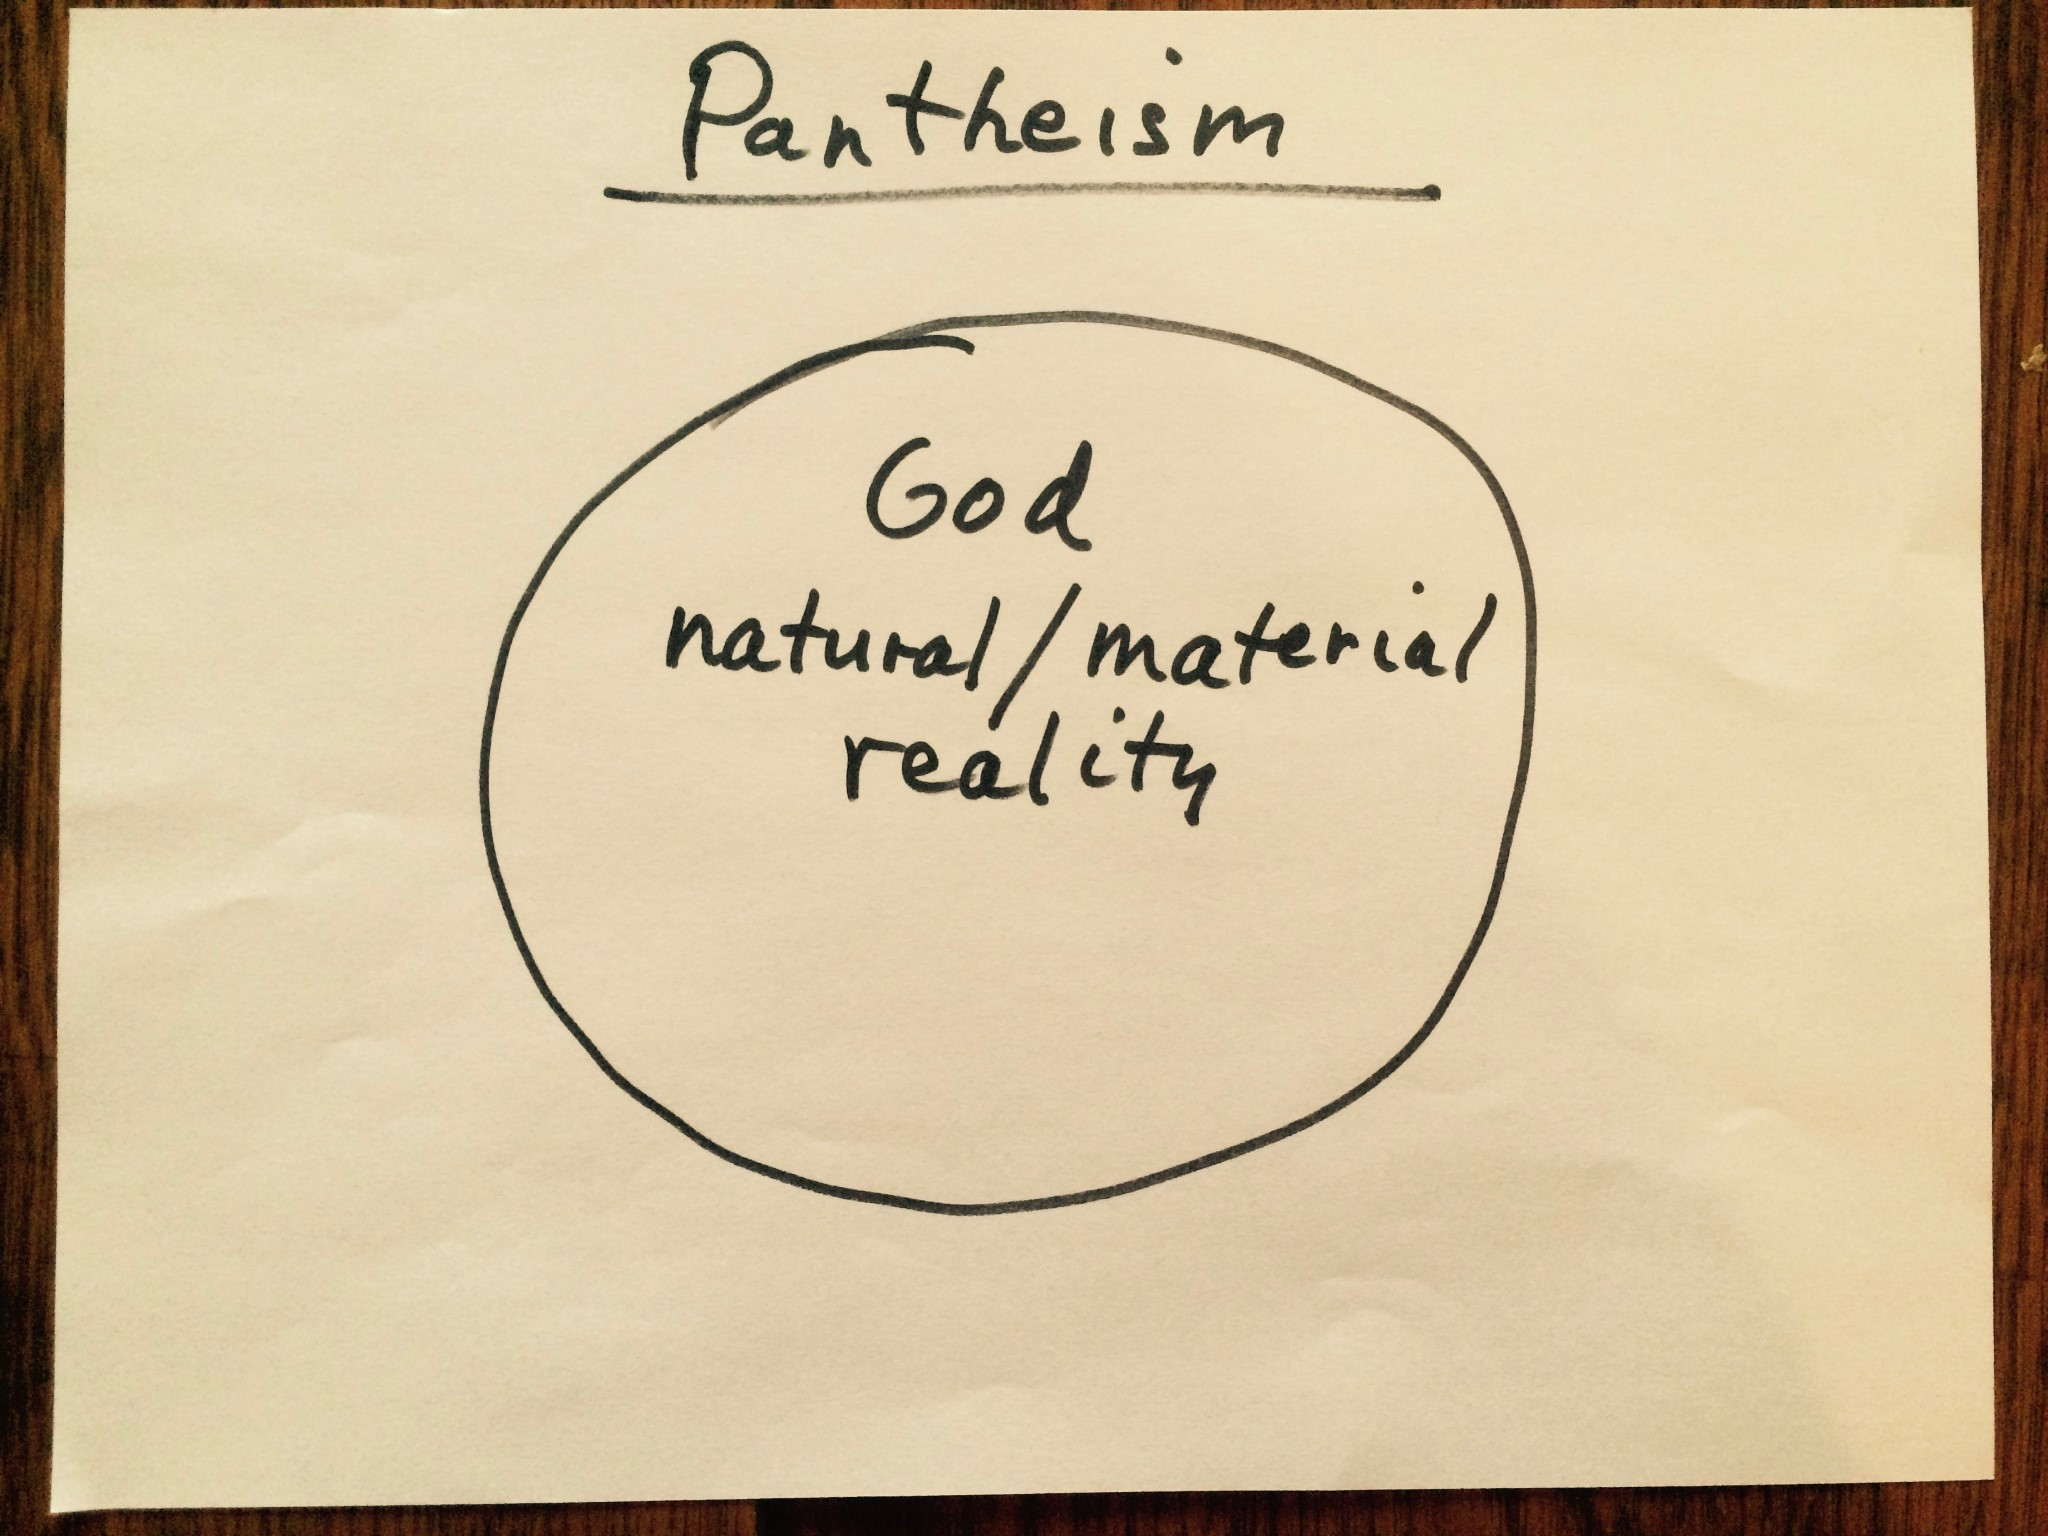 Pantheism
God
natural/material
reality